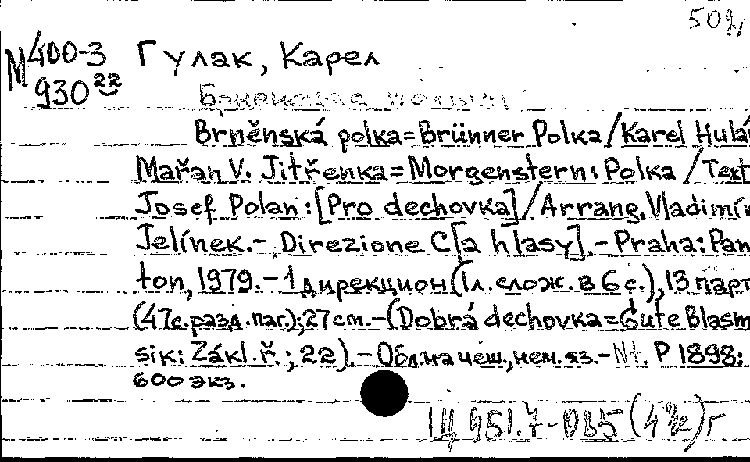 50к
М 400-3 Гулак, Карел
930 22
Brněnská polka=Brünner Polka/Karel Hulá
Mařan V. Jitřenka=Morgenstern: Polka/Text
Josef Polan:[Pro dechovka]/Arrang. Vladimír
Jelínek.- Direzione C[a hlasy].-Praha: Pan
ton, 1979.-1 дирекцион (1 л. слож. в 6 с.), 13 парт
(47с. разд. паг.); 27 cm.-(Dobrá dechovka=Gute Blasm
sik: Zákl.ř.; 22).-Обл. на чеш., нем. яз.-Nt. P 1898:
600 экз.